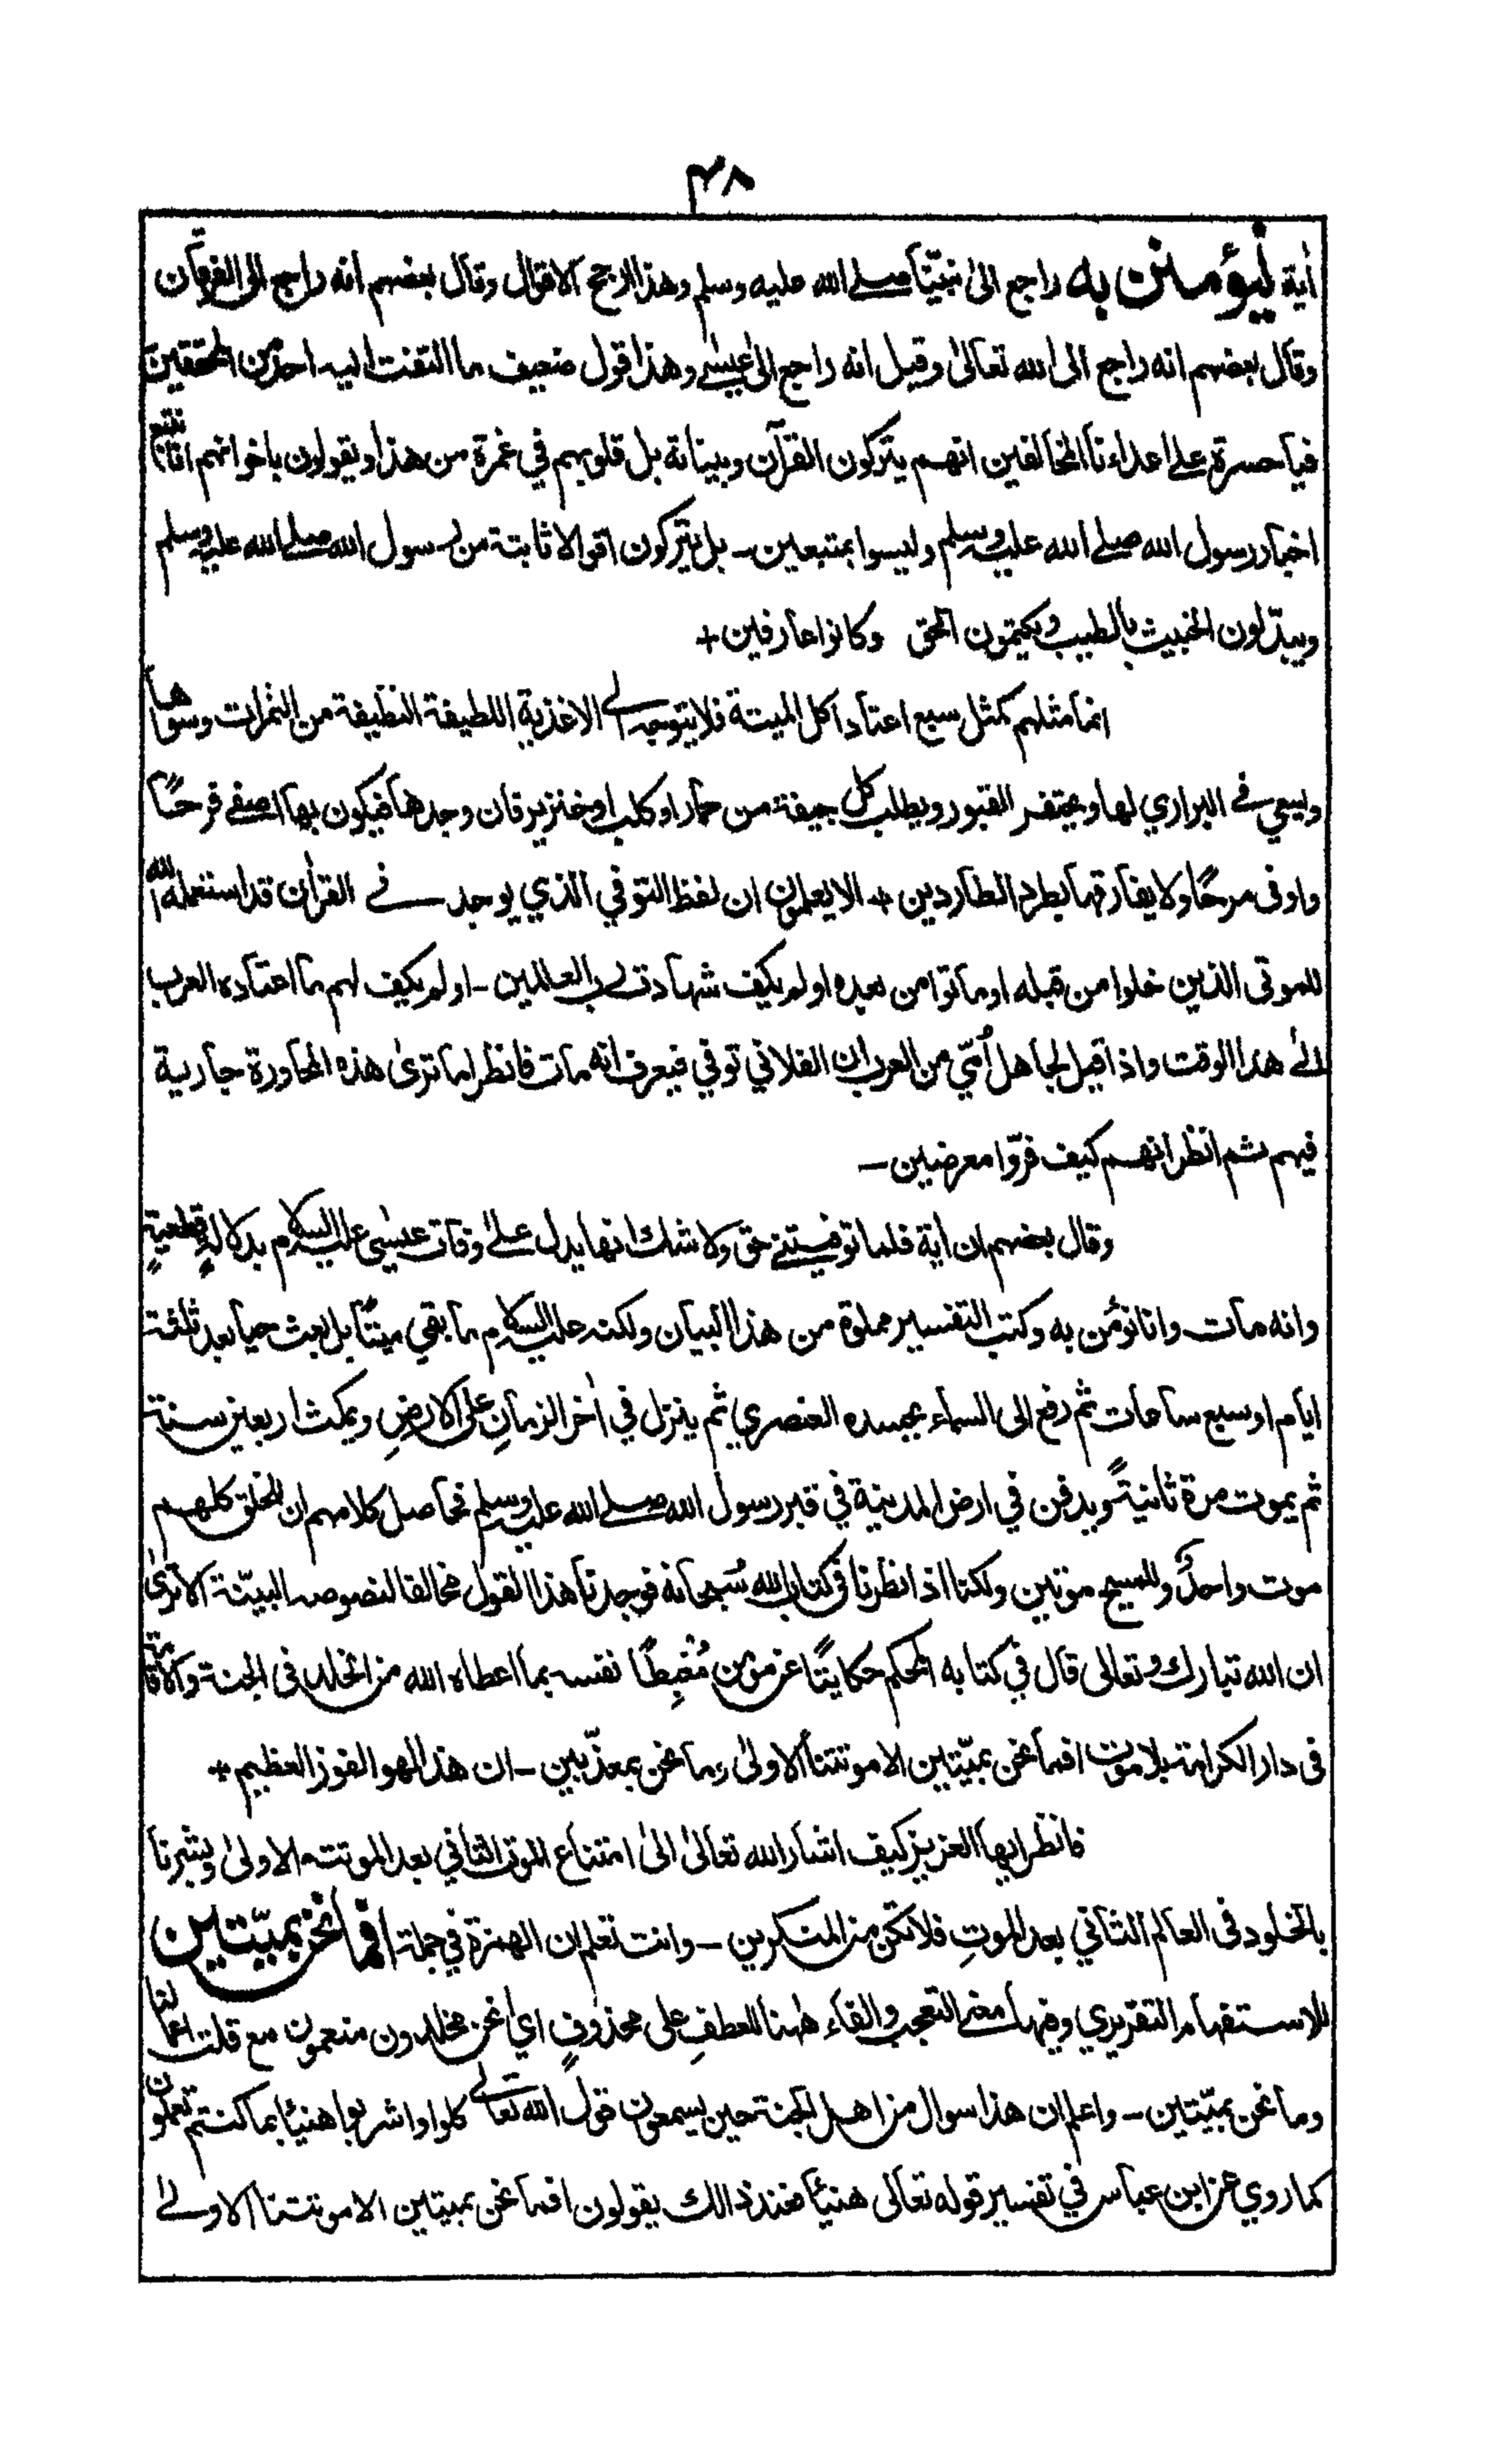 ٤٨
اٰية ليؤمنن به راجع الىٰ نبيّنا صلے الله عليه وسلم وهذا ارجح الاقوال وقال بعضهم انه راجع الى الفرقان
وقال بعضهم انه راجع الى الله تعالىٰ وقيل انه راجع الىٰ عيسٰے وهذا قول ضعيف ما التفت اليه احد من المحققين
فيا حسرة علے اعداءنا المخالفين انهم يتركون القرآن وبيناته بل قلوبهم في غمرة من هذا ويقولون باخوانهم انا نتبع
اخبار رسول الله صلے الله عليه وسلم وليسوا بمتبعين ـ بل يتركون اقوالا ثابتة من رسول الله صلے الله عليه وسلم
ويبدّلون الخبيث بالطيب ويكتمون الحق وكانوا عارفين +
انما مثلهم كمثل سبع اعتاد اكل الميتة فلا يتوجه الے الاغذية اللطيفة النظيفة من الثمرات وسواها
ويسعى فے البراري لها ويحتفر القبور ويطلب كل جيفة من حمار او كلب او خنزير فان وجدها فيكون بها اصفے فرحًا
واوفى مرحًا ولا يفارقها بطرد الطاردين + الا يعلمون ان لفظ التوفي الذي يوجد فے القراٰن قد استعمله الله
للموتى الذين خلوا من قبله او ماتوا من بعده او لم يكف شهادت رب العالمين ـ او لم يكف لهم ما اعتاده العرب
الےٰ هذا الوقت واذا قيل لجاهل اُمّي من العرب ان الفلاني توفي فيعرف انه مات فانظر اما ترىٰ هذه المحاورة جارية
فيهم ثم انظر انهم كيف فرّوا معرضين ـ
وقال بعضهم ان اٰية فلما توفيتنے حق ولا شك انها يدل علےٰ وفات عيسٰى عليه السلام بدلالةٍ قطعيةٍ
وانه مات وانا نؤمن به وكتب التفسير مملوة من هذا البيان ولكنه عليه السلام ما بقي ميتًا بل بعث حيا بعد ثلثة
ايام او سبع ساعات ثم رفع الى السماء بجسده العنصري ثم ينزل في اٰخر الزمانِ على الارضِ ويمكث اربعين سنة
ثم يموت مرة ثانيةً ويدفن في ارض المدينة في قبر رسول الله صلے الله عليه وسلم فحاصل كلامهم ان للخلق كلهم
موت واحدٌ وللمسيح موتين ولكنا اذا نظرنا فى كتاب الله سُبحانه فوجدنا هذا القول مخالفا لنصوصه البيّنة الا ترىٰ
ان الله تبارك وتعالى قال في كتابه المحكم حكايتًا عن مؤمن مُغبِطًا نفسه بما اعطاه الله من الخلد فى الجنة والاقامة
فى دار الكرامة بلا موت افما نحن بميّتين الا موتتنا الاولىٰ وما نحن بمعذّبين ـ ان هذا لهو الفوز العظيم +
فانظر ايها العزيز كيف اشار الله تعالىٰ الىٰ امتناع الموت الثاني بعد الموتته الاولىٰ وبشّرنا
بالخلود فى العالم الثاني بعد الموتِ فلا تكن من المنكرين ـ وانت تعلم ان الهمزة في جملة افما نحن بميّتين
للاستفهام التقريري وفيها معنے التعجب والفاء هٰهنا للعطفِ على محذوفٍ اي أنحن مخلدون منعمون مع قلت اعمالنا
وما نحن بميّتين ـ واعلم ان هذا سوال من اهل الجنة حين يسمعون قول الله تعالے كلوا واشربوا هنيئا بما كنتم تعملون
كما روي عن ابن عباس في تفسير قوله تعالى هنيئا فعند ذالك يقولون افما نحن بميتين الا موتتنا الاولےٰ